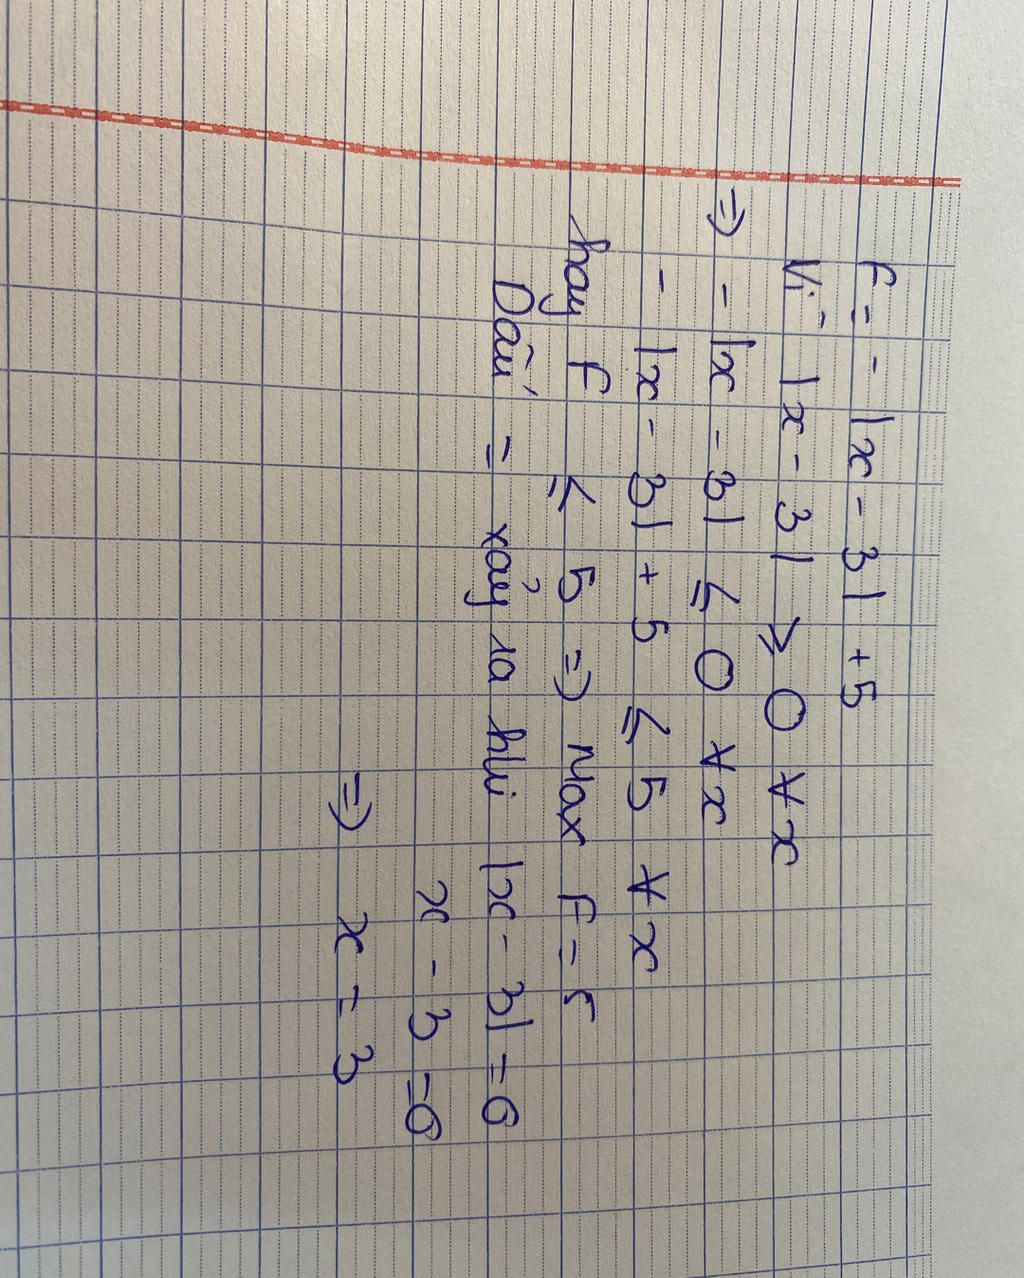 F = - |x - 3| + 5
Vì |x - 3| ⩾ 0 ∀x
=> - |x - 3| ⩽ 0 ∀x
- |x - 3| + 5 ⩽ 5 ∀x
hay F ⩽ 5 => Max F = 5
Dấu = xảy ra khi |x - 3| = 0
x - 3 = 0
=> x = 3